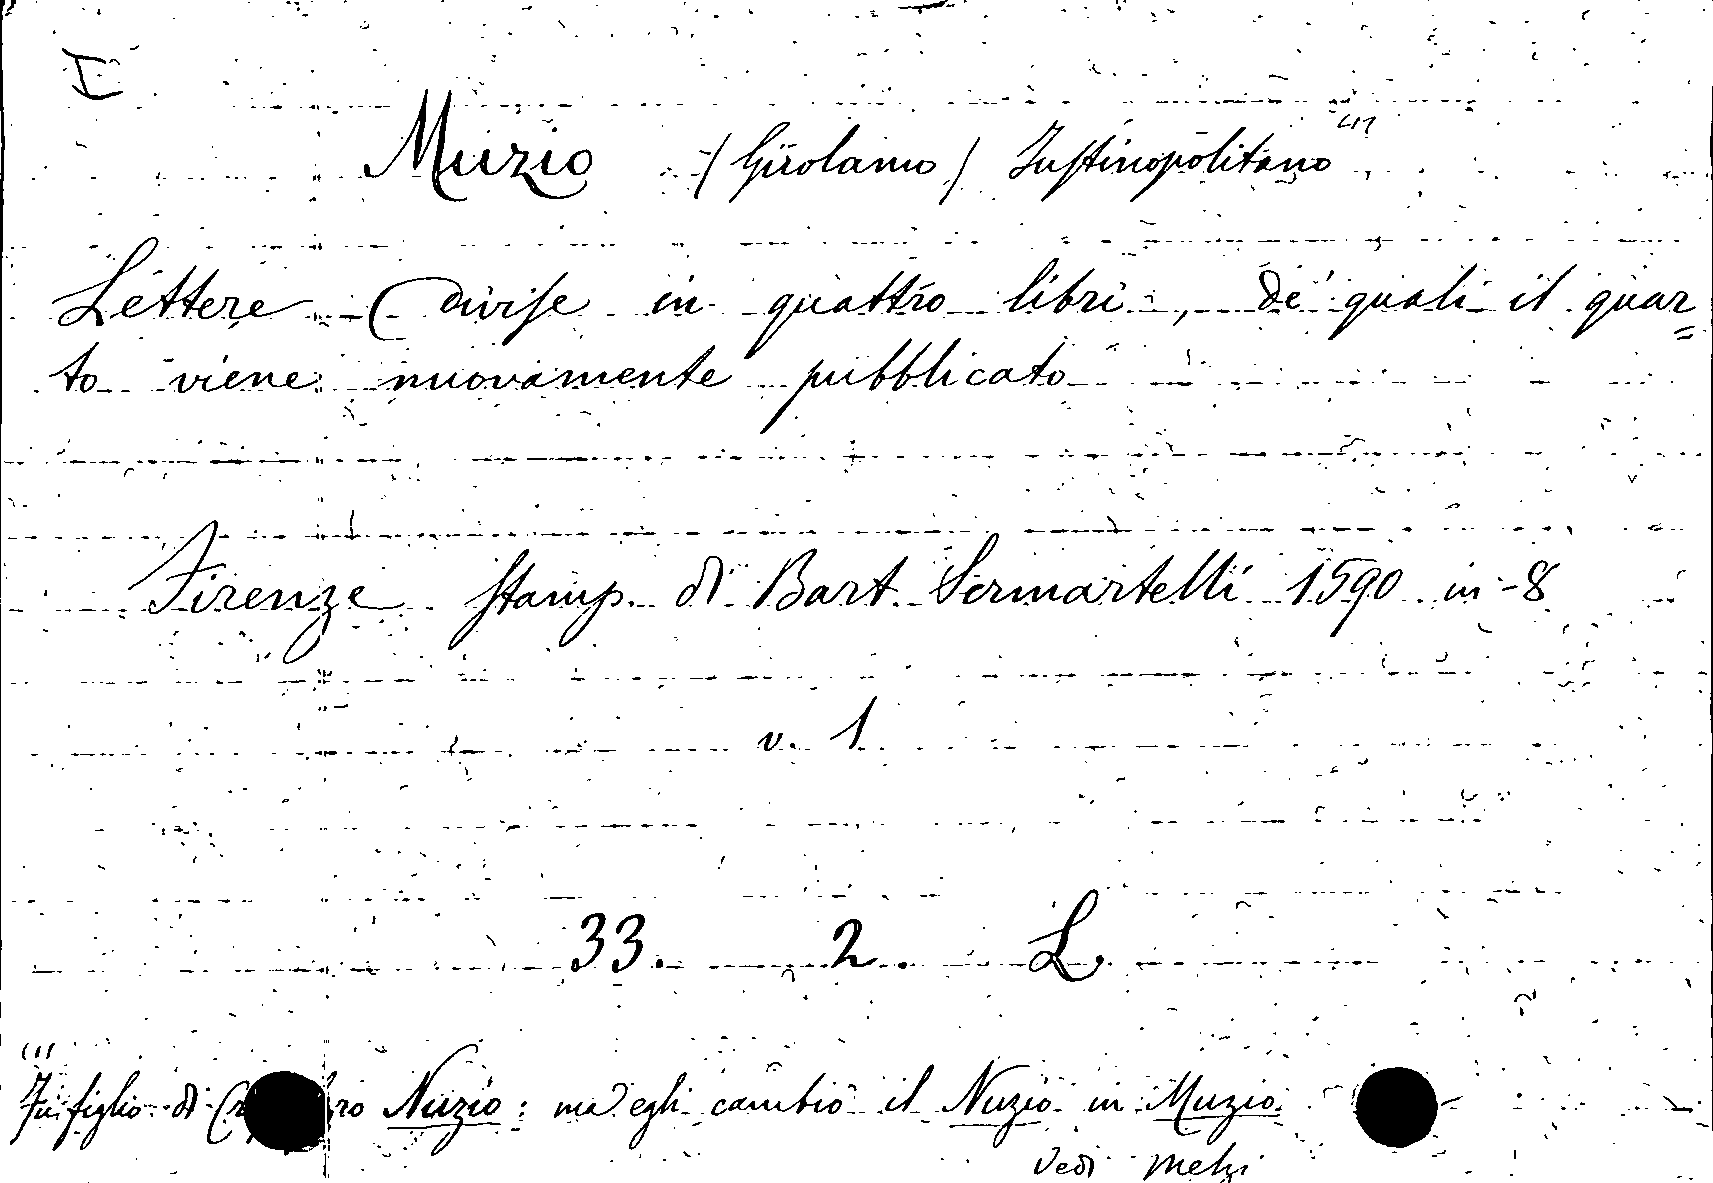 I
Muzio (Girolamo) Justinopolitano (1)
Lettere (divise in quattro libri, de' quali il quar=
to viene nuovamente pubblicato
Firenze stamp. di Bart. Sermartelli 1590 in-8
v. 1
33. 2. L.
(1)
Fu figlio di Nuzio: ma egli cambiò il Nuzio in Muzio.
Vedi Melzi